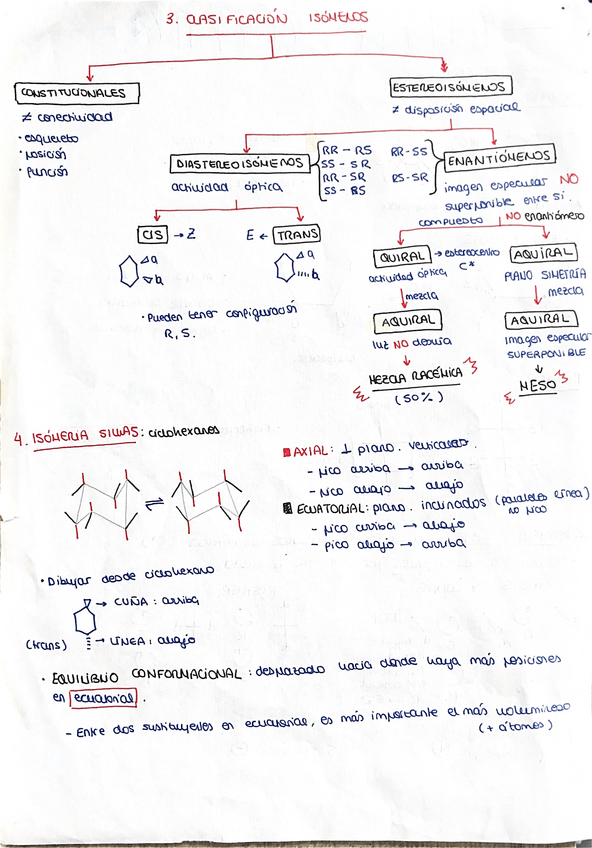 3. CLASIFICACIÓN ISÓMEROS
CONSTITUCIONALES
≠ conectividad
· esqueleto
· posición
· función
ESTEREOISÓMEROS
≠ disposición espacial
DIASTEREOISÓMEROS
actividad óptica
RR - RS
SS - SR
RR - SR
SS - RS
RR-SS
RS-SR
ENANTIÓMEROS
imagen especular NO
superponible entre sí.
CIS → Z
E ← TRANS
a
b
a
b
· Pueden tener configuración
R, S.
compuesto
NO enantiómero
QUIRAL → estereocentro
C*
actividad óptica
mezcla
AQUIRAL
luz NO desvía
MEZCLA RACÉMICA
(50%)
AQUIRAL
PLANO SIMETRÍA
mezcla
AQUIRAL
imagen especular
SUPERPONIBLE
MESO
4. ISOMERIA SILLAS: ciclohexanos
AXIAL: ⊥ plano. verticales.
- pico arriba → arriba
- pico abajo → abajo
ECUATORIAL: plano. inclinados (paralelos línea)
no pico
- pico arriba → abajo
- pico abajo → arriba
· Dibujar desde ciclohexano
→ CUÑA: arriba
(trans) → LÍNEA: abajo
· EQUILIBRIO CONFORMACIONAL: desplazado hacia donde haya más posiciones
en ecuatorial.
- Entre dos sustituyentes en ecuatorial, es más importante el más voluminoso
(+ átomos)